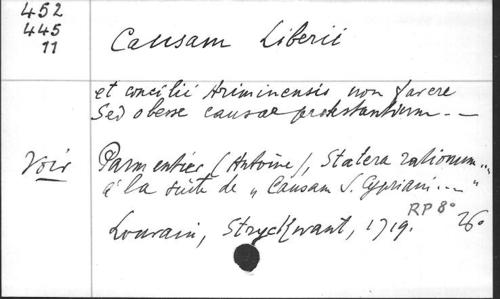 452
445
11
Causam Liberii
et concilii Ariminensis non favere
Sed obesse causae protestantium ---
Voir Parmentier (Antoine), Statera rationum...
à la suite de „Causam S. Cypriani..."
Louvain, Stryckwant, 1719.
RP 8° 26°